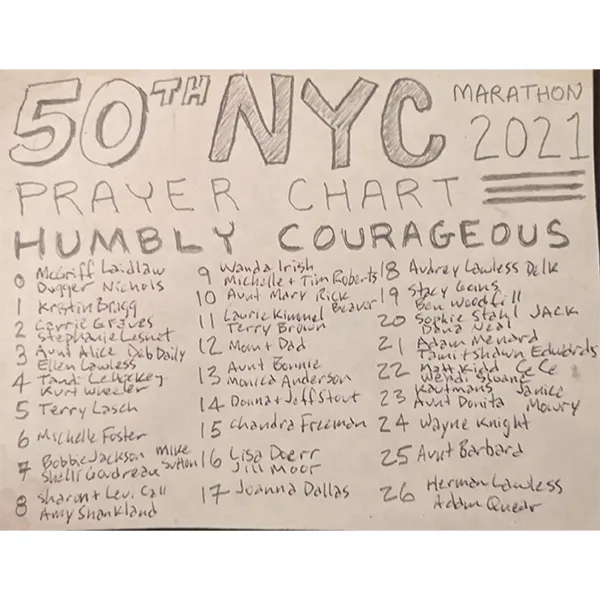 50TH NYC MARATHON
2021
PRAYER CHART
HUMBLY COURAGEOUS
0 McGriff Laidlaw
Dugger Nichols
1 Kristin Brigg
2 Carrie Graves
Stephanie Lesnet
3 Aunt Alice Deb Daily
Ellen Lawless
4 Tandi
Kurt Wheeler
5 Terry Lasch
6 Michelle Foster
7 Bobbie Jackson Mike
Shelli Goudreau Sutton
8 Sharon + Levi Call
Amy Shankland
9 Wanda Irish
Michelle + Tim Roberts
10 Aunt Mary Rick
Beaver
11 Laurie Kimmel
Terry Brown
12 Mom + Dad
13 Aunt Bonnie
Monica Anderson
14 Donna + Jeff Stout
15 Chandra Freeman
16 Lisa Doerr
Jill Moor
17 Joanna Dallas
18 Audrey Lawless Delk
19 Stacy Goins
Ben Woodfill
20 Sophie Stahl JACK
Dana Neal
21 Adam Menard
Tami + Shawn Edwards
22 Matt Kidd CeCe
Wendi Sloane
23 Kautmans Janice
Aunt Donita Mowry
24 Wayne Knight
25 Aunt Barbara
26 Herman Lawless
Adam Quear